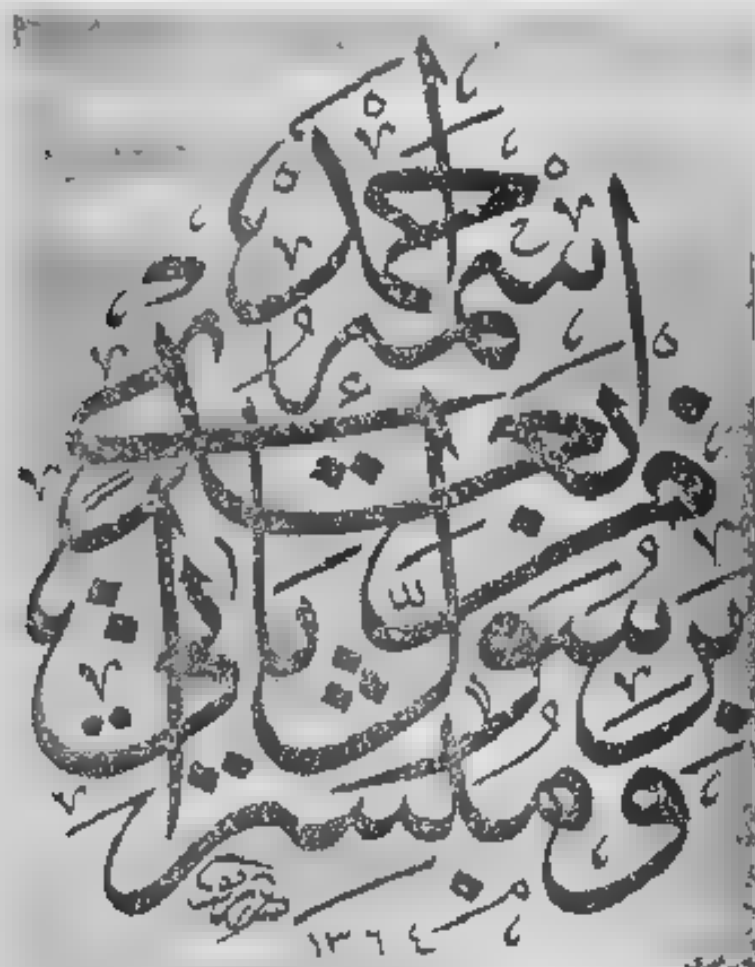 ومبشرا
برسول يأتي
من بعدي
اسمه أحمد
١٣٦٤